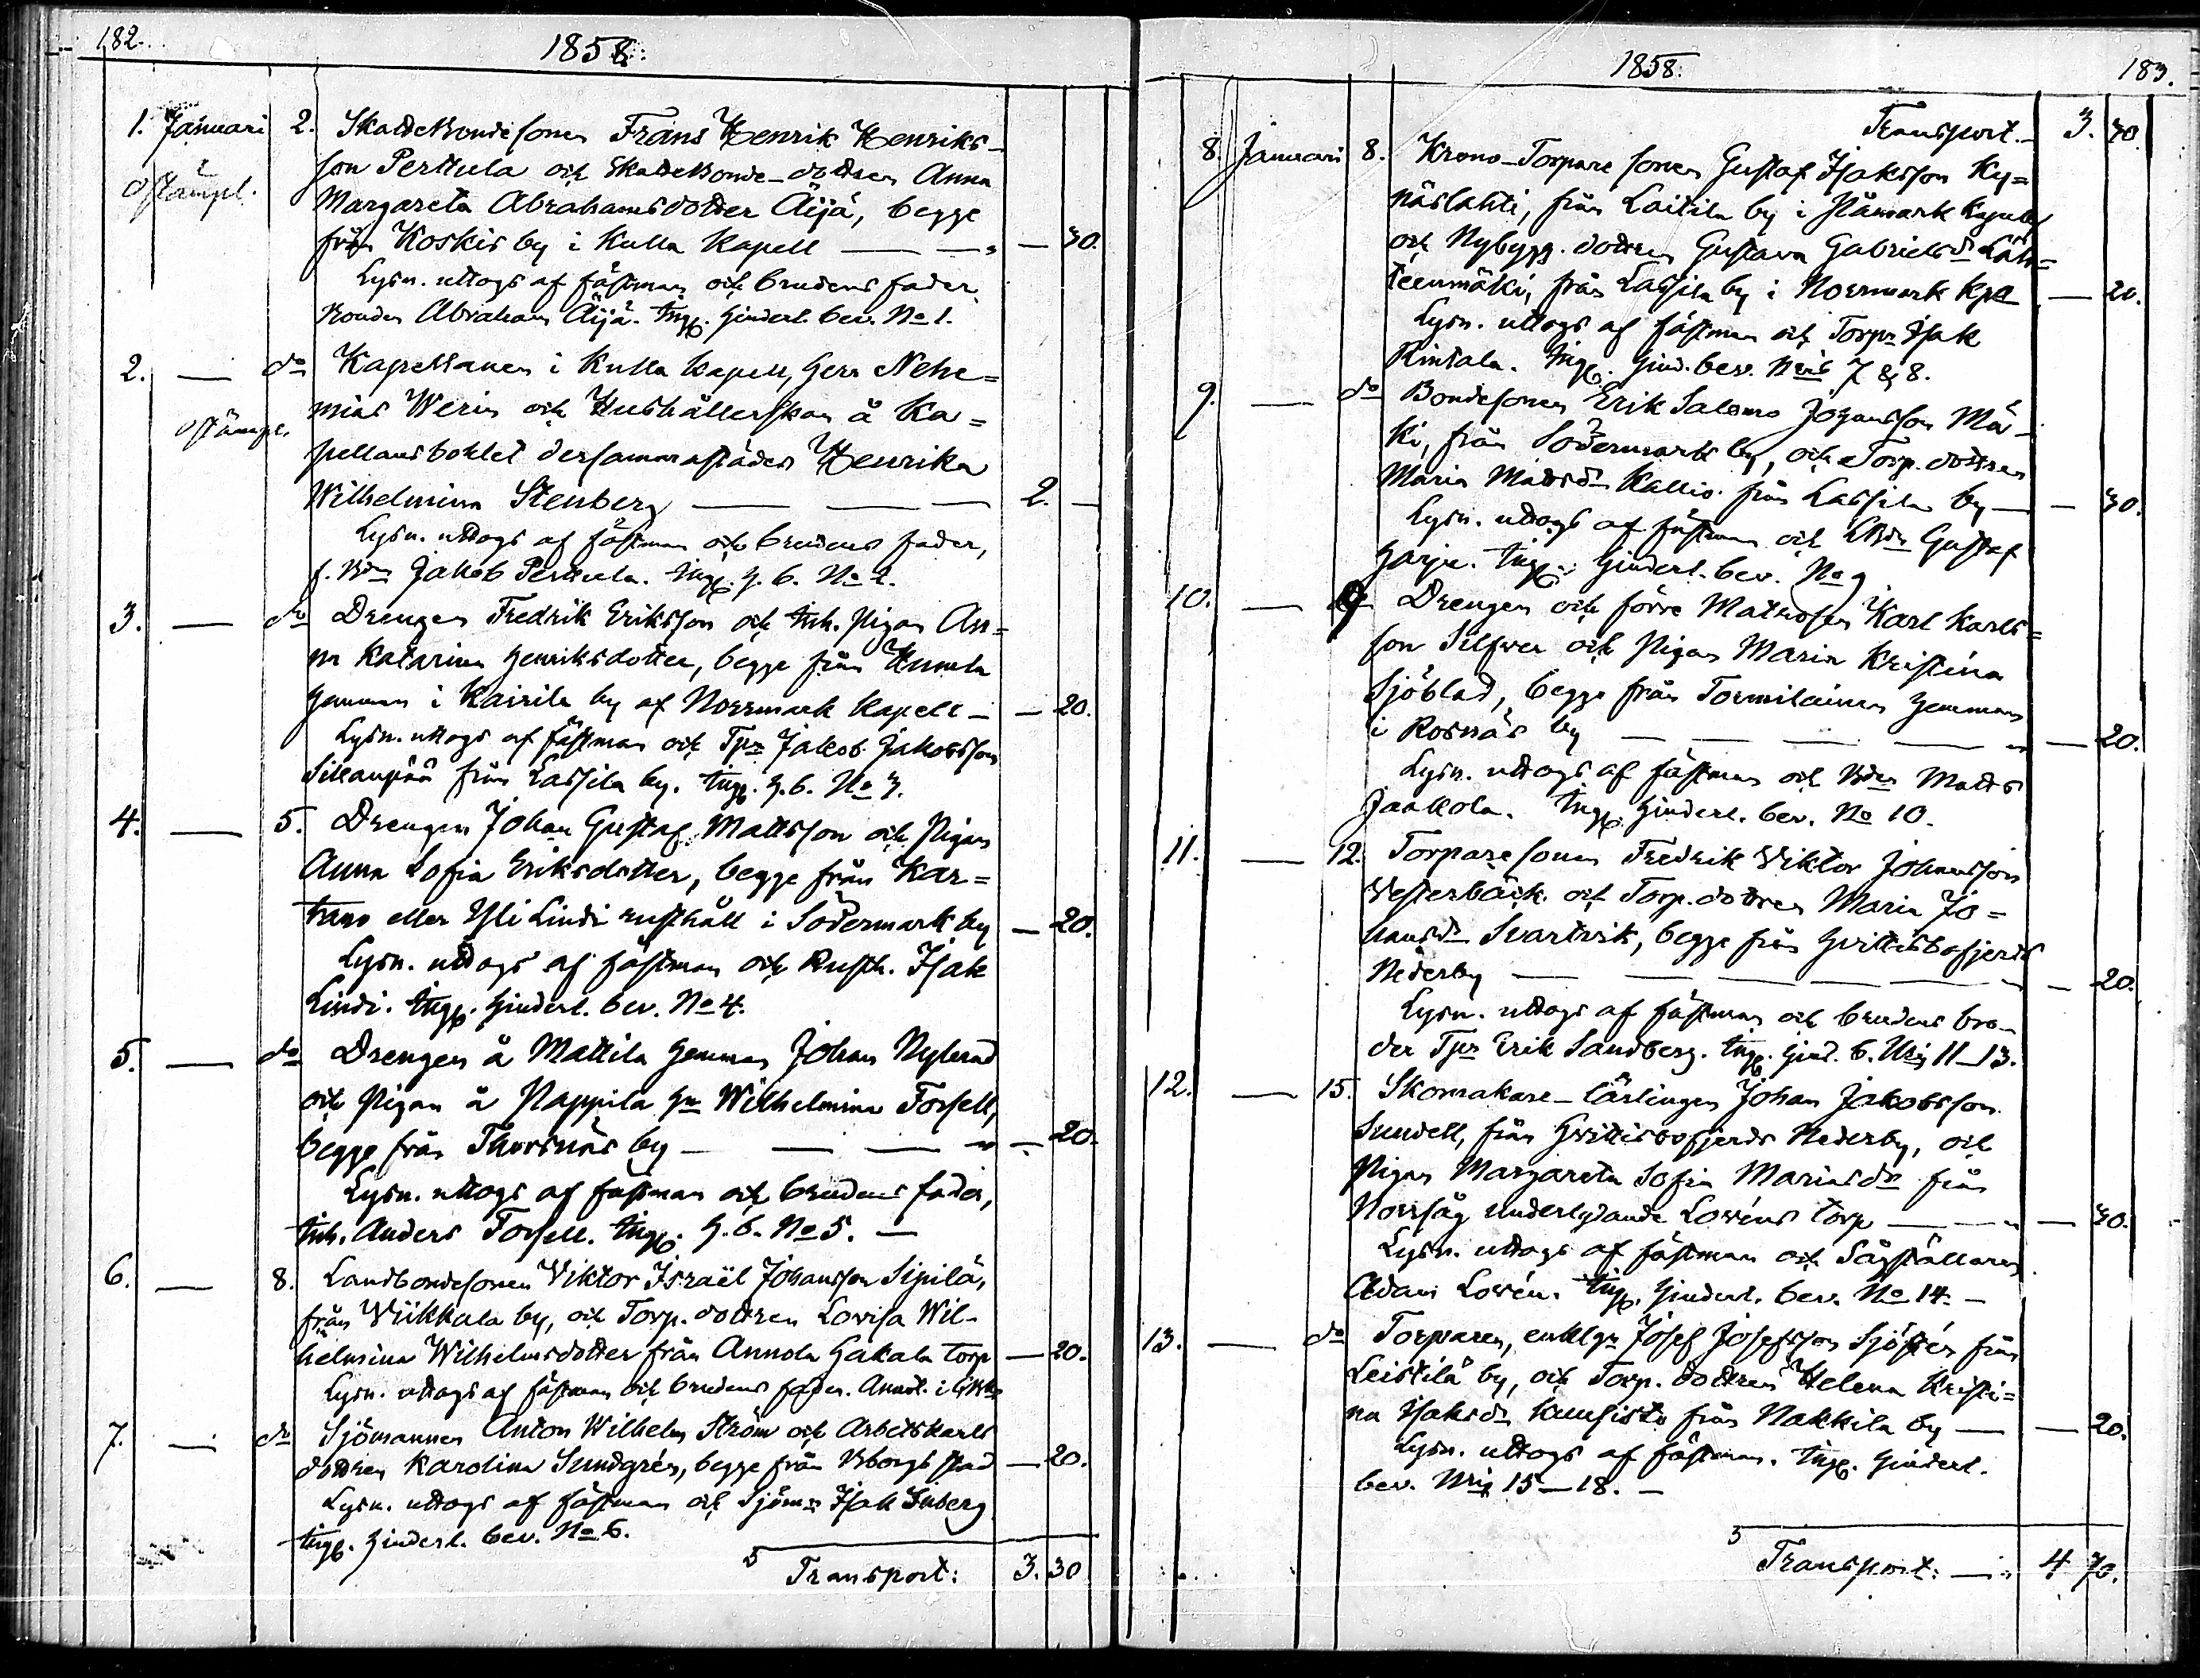 182.
1858.
1. Januari 2. Skattebondesonen Frans Henrik Henriks-
ostämpl. son Perttula och Skattebonde-dottren Anna
Margareta Abrahamsdotter Äijä, begge
från Koskis by i Kulla Kapell — — 30.
Lysn. uttogs af fästman och brudens fader,
bonden Abraham Äijä. Ingg. hinderl. bev. No 1.
2. — do Kapellanen i Kulla Kapell, Herr Nehe=
ostämpl. mias Werin och Hushållerskan å Ka=
pellansbohlet dersammastädes Henrika
Wilhelmina Stenberg — — — 2. —
Lysn. uttogs af fästman och brudens fader,
f. Bdn Jakob Perttula. Ingg. h. b. No 2.
3. — do Drengen Fredrik Eriksson och Inh. Pigan An=
na Katarina Henriksdotter, begge från
hemman i Kairila by af Norrmark Kapell — — 20.
Lysn. uttogs af fästman och Tpr Jakob Jakobsson
Sillanpää från Lassila by. Ingg. h. b. No 3.
4. — 5. Drengen Johan Gustaf Mattsson och Pigan
Anna Sofia Eriksdotter, begge från Kar=
tano eller Yli Lindi rusthåll i Södermark by — 20.
Lysn. uttogs af fästman och Rusth. Isak
Lindi. Ingg. hinderl. bev. No 4.
5. — do Drengen å Mattila hemman Johan Nylund
och Pigan å Pappila hn Wilhelmina Forsell,
begge från Thorsnäs by — — — 20.
Lysn. uttogs af fästman och brudens fader,
Inh. Anders Forsell. Ingg. h. b. No 5. —
6. — 8. Landbondesonen Viktor Israël Johansson Sipilä,
från Wiikkala by, och Torp. dottren Lovisa Wil-
helmina Wilhelmsdotter från Annola Hakala torp — 20.
Lysn. uttogs af fästman och brudens fader. Annot. i
7. — do Sjömannen Anton Wilhelm Ström och Arbetskarls
dottren Karolina Sundgrén, begge från Bborgs stad — 20.
Lysn. uttogs af fästman och Sjömn Isak Inberg
Ingg. hinderl. bev. No 6.
Transport: 3. 30
1858.
183.
Transport — 3. 30.
8. Januari 8. Krono-Torpare sonen Gustaf Isaksson Ky=
näslahti, från Laitila by i Påmark Kapell
och Nybygg. dottren Gustava Gabrielsdr Läh=
teenmäki, från Lassila by i Norrmark Kpll — 20.
Lysn. uttogs af fästman och Torpr Isak
Rintala. Ingg. hind. bev. Nris 7 & 8.
9. — do Bondesonen Erik Salomo Johansson Mä-
ki, från Södermark by, och Torp. dottren
Maria Mattsdr Kallio från Lassila by — — 30.
Lysn. uttogs af fästman och LBdn Gustaf
Harju. Ingg. hinderl. bev. No 9
10. — 9 Drengen och förre Matrosen Karl Karls=
son Silfver och Pigan Maria Kristina
Sjöblad, begge från Tormilainen hemman
i Rosnäs by — — — — 20.
Lysn. uttogs af fästman och Bdn Matts
Jaakola. Ingg. hinderl. bev. No 10.
11. — 12. Torparesonen Fredrik Viktor Johansson
Westerbäck och Torp. dottren Maria Jo=
hansdr Svartvik, begge från Hvittisbofjerds
Nederby — — — — 20.
Lysn. uttogs af fästman och brudens bro-
der Tpr Erik Sandberg. Ingg. hind. b. Nris 11–13.
12. — 15. Skomakare-lärlingen Johan Jakobsson
Sundell, från Hvittisbofjerds Nederby, och
Pigan Margareta Sofia Mariasdr från
Norrsåg underlydande Lovéns torp — — 30.
Lysn. uttogs af fästman och Sågställaren
Adam Lovén. Ingg. hinderl. bev. No 14. —
13. — do Torparen, enklgn Josef Josefsson Sjöstén från
Leistilä by, och Torp. dottren Helena Kristi=
na Isaksdr Kuusisto från Nakkila by — — 20.
Lysn. uttogs af fästman. Ingg. hinderl.
bev. Nris 15–18. —
Transport: — 4 70.